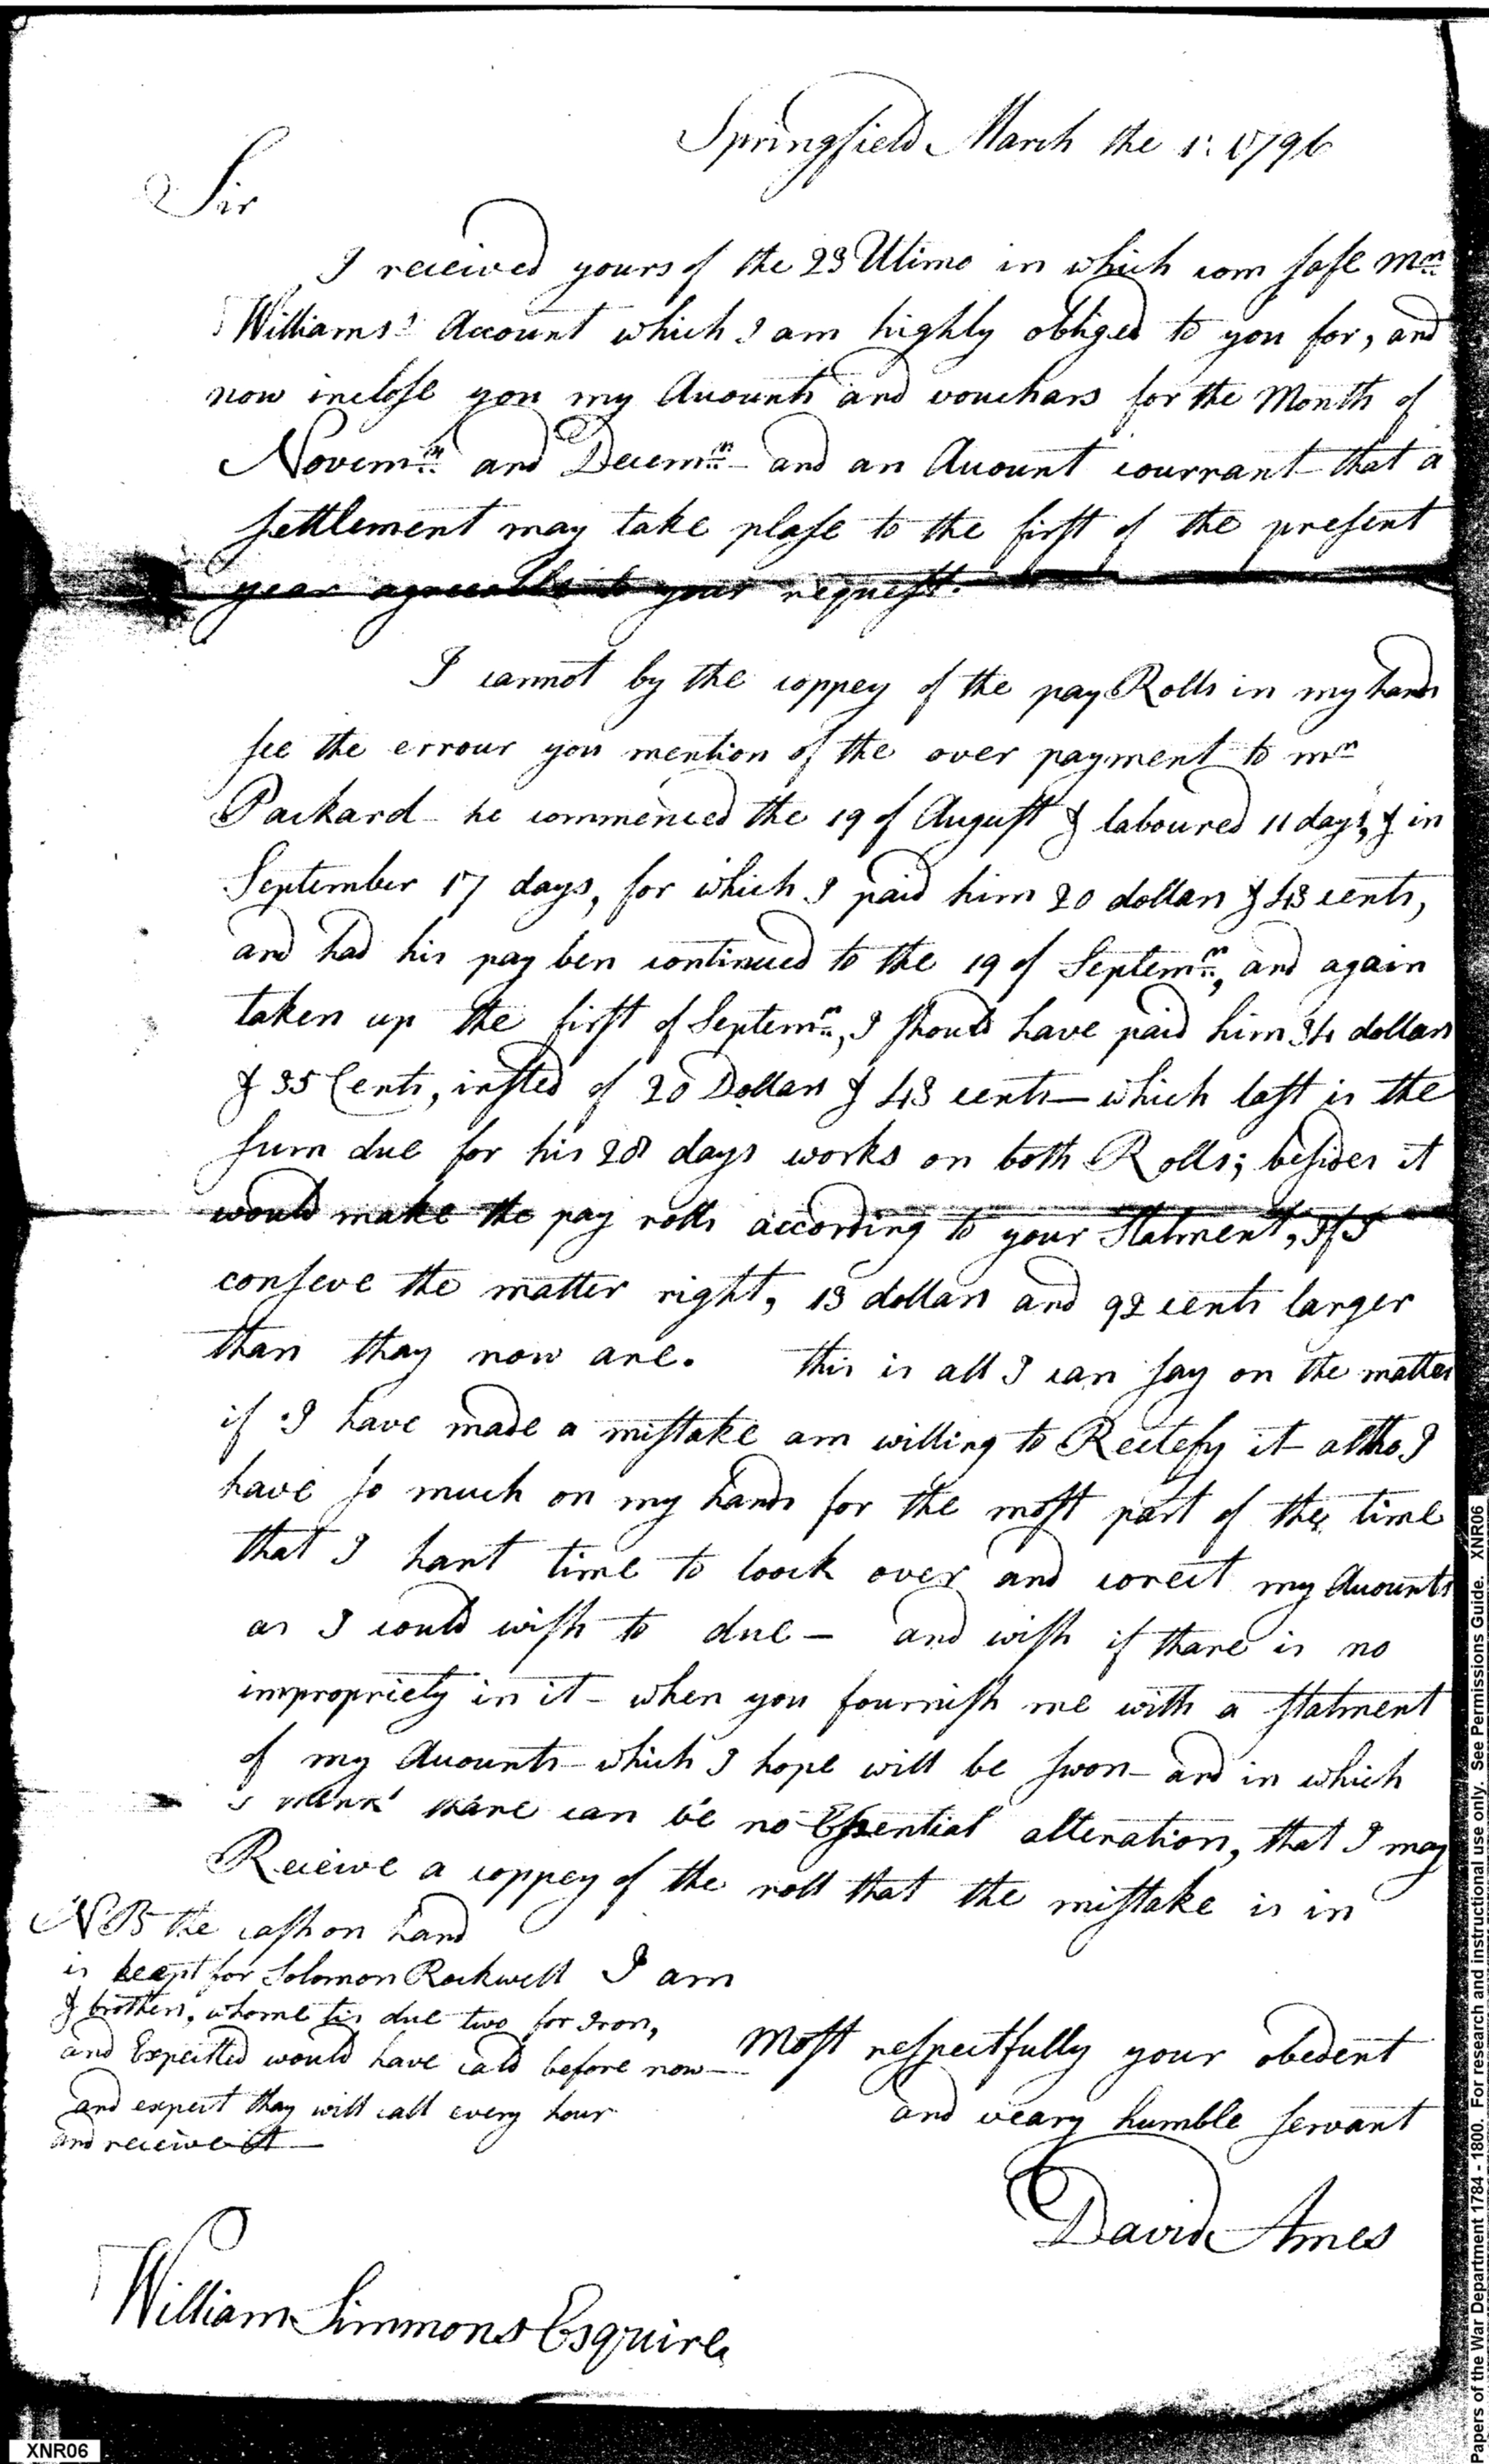 Springfield March the 1: 1796
Sir
I received yours of the 23 Ultimo in which com safe Mr
Williams' Account which I am highly obliged to you for, and
now inclose you my Accounts and vouchars for the Month of
Novemr and Decemr and an Account courrant that a
settlement may take plase to the first of the present
year agreeable to your request.
I cannot by the coppey of the pay Rolls in my hands
see the errour you mention of the over payment to mr
Packard he commenced the 19 of August & laboured 11 days, & in
September 17 days, for which I paid him 20 dollars & 43 cents,
and had his pay ben continued to the 19 of Septemr, and again
taken up the first of Septemr, I should have paid him 34 dollars
& 35 Cents, insted of 20 Dollars & 43 cents — which last is the
sum due for his 28 days works on both Rolls; besides it
would make the pay rolls according to your Statment, If I
conseve the matter right, 13 dollars and 92 cents larger
than thay now are. this is all I can say on the matter
if I have made a mistake am willing to Rectefy it altho I
have so much on my hands for the most part of the time
that I hant time to loock over and corect my Accounts
as I could wish to due — and wish if thare is no
impropriety in it — when you fournish me with a statment
of my Accounts which I hope will be swon — and in which
I think thare can be no Essential alteration, that I may
Receive a coppey of the roll that the mistake is in
NB the cash on hand
is keept for Solomon Rockwell
& brothers, whome tis due two for Iron,
and Expectted would have cald before now —
and expect thay will call every hour
and receive it —
I am
Most respectfully your obedent
and veary humble servant
David Ames
William Simmons Esquire
XNR06
Papers of the War Department 1784 - 1800. For research and instructional use only. See Permissions Guide. XNR06